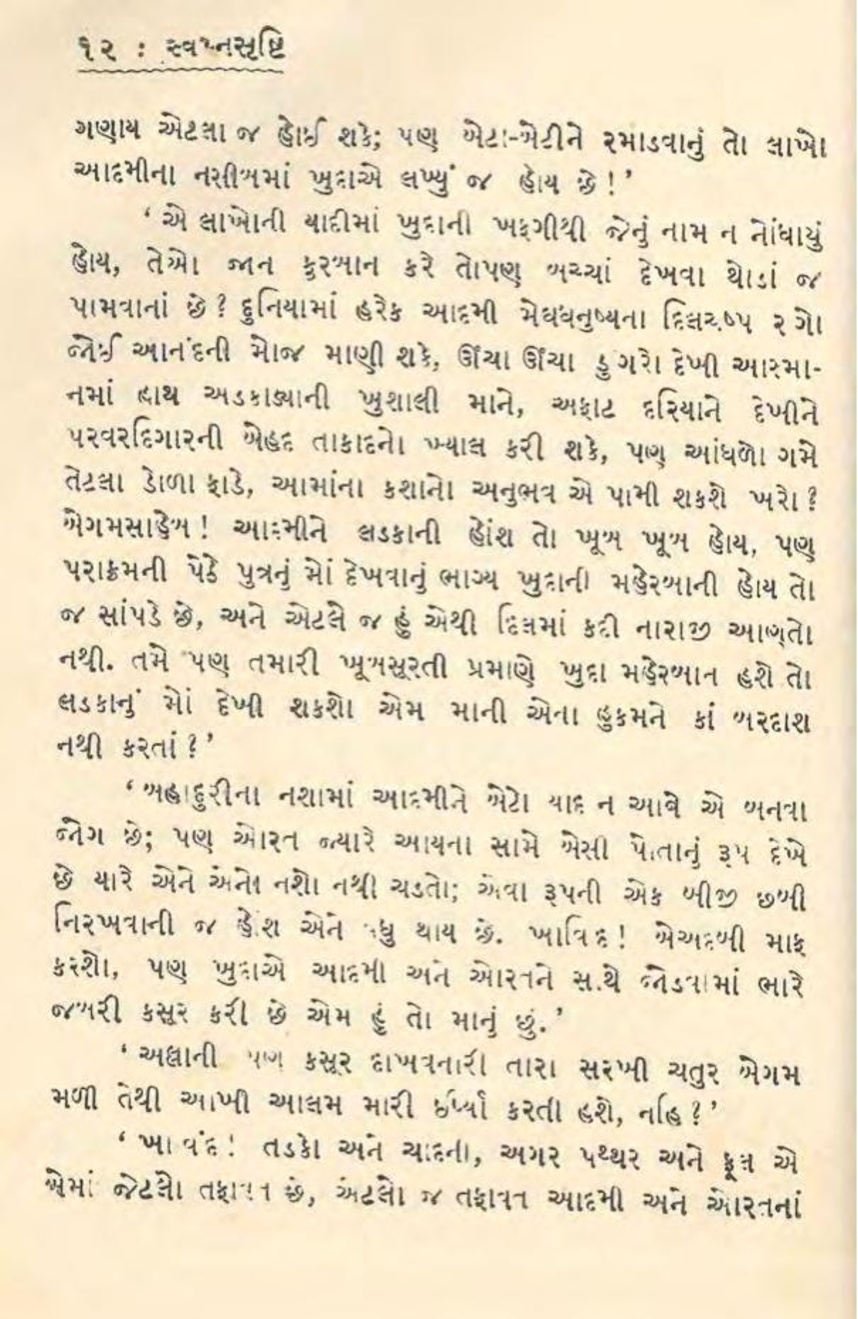 ૧૨ : સ્વપ્નસૃષ્ટિ
ગણાય એટલા જ હોઈ શકે; પણ બેટા-બેટીને રમાડવાનું તો લાખો
આદમીના નસીબમાં ખુદાએ લખ્યું જ હોય છે!’
‘એ લાખોની યાદીમાં ખુદાની ખફગીથી જેનું નામ ન નોંધાયું
હોય, તેઓ જાન કુરબાન કરે તોપણ બચ્ચાં દેખવા થોડાં જ
પામવાનાં છે? દુનિયામાં હરેક આદમી મેઘધનુષ્યના દિલચષ્પ રંગો
જોઈ આનંદની મોજ માણી શકે, ઊંચા ઊંચા ડુંગરો દેખી આસ્મા-
નમાં હાથ અડકાડ્યાની ખુશાલી માને, અફાટ દરિયાને દેખીને
પરવરદિગારની બેહદ તાકાદનો ખ્યાલ કરી શકે, પણ આંધળો ગમે
તેટલા ડોળા ફાડે, આમાંના કશાનો અનુભવ એ પામી શકશે ખરો?
બેગમસાહેબ! આદમીને લડકાની હોંશ તો ખૂબ ખૂબ હોય, પણ
પરાક્રમની પેઠે પુત્રનું મોં દેખવાનું ભાગ્ય ખુદાની મહેરબાની હોય તો
જ સાંપડે છે, અને એટલે જ હું એથી દિલમાં કદી નારાજી આણતો
નથી. તમે પણ તમારી ખૂબસૂરતી પ્રમાણે ખુદા મહેરબાન હશે તો
લડકાનું મોં દેખી શકશો એમ માની એના હુકમને કાં બરદાશ
નથી કરતાં?’
‘બહાદુરીના નશામાં આદમીને બેટો યાદ ન આવે એ બનવા
જોગ છે; પણ ઓરત જ્યારે આયના સામે બેસી પોતાનું રૂપ દેખે
છે યારે એને એનો નશો નથી ચડતો; એવા રૂપની એક બીજી છબી
નિરખવાની જ હોંશ એને વધુ થાય છે. ખાવિંદ! બેઅદબી માફ
કરશો, પણ ખુદાએ આદમી અને ઓરતને સાથે જોડવામાં ભારે
જબરી કસૂર કરી છે એમ હું તો માનું છું.’
‘અલ્લાની પણ કસૂર દાખવનારી તારા સરખી ચતુર બેગમ
મળી તેથી આખી આલમ મારી ઈર્ષ્યા કરતી હશે, નહિ?’
‘ખાવંદ! તડકો અને ચાંદની, અગર પથ્થર અને ફૂલ એ
બેમાં જેટલો તફાવત છે, એટલો જ તફાવત આદમી અને ઓરતનાં